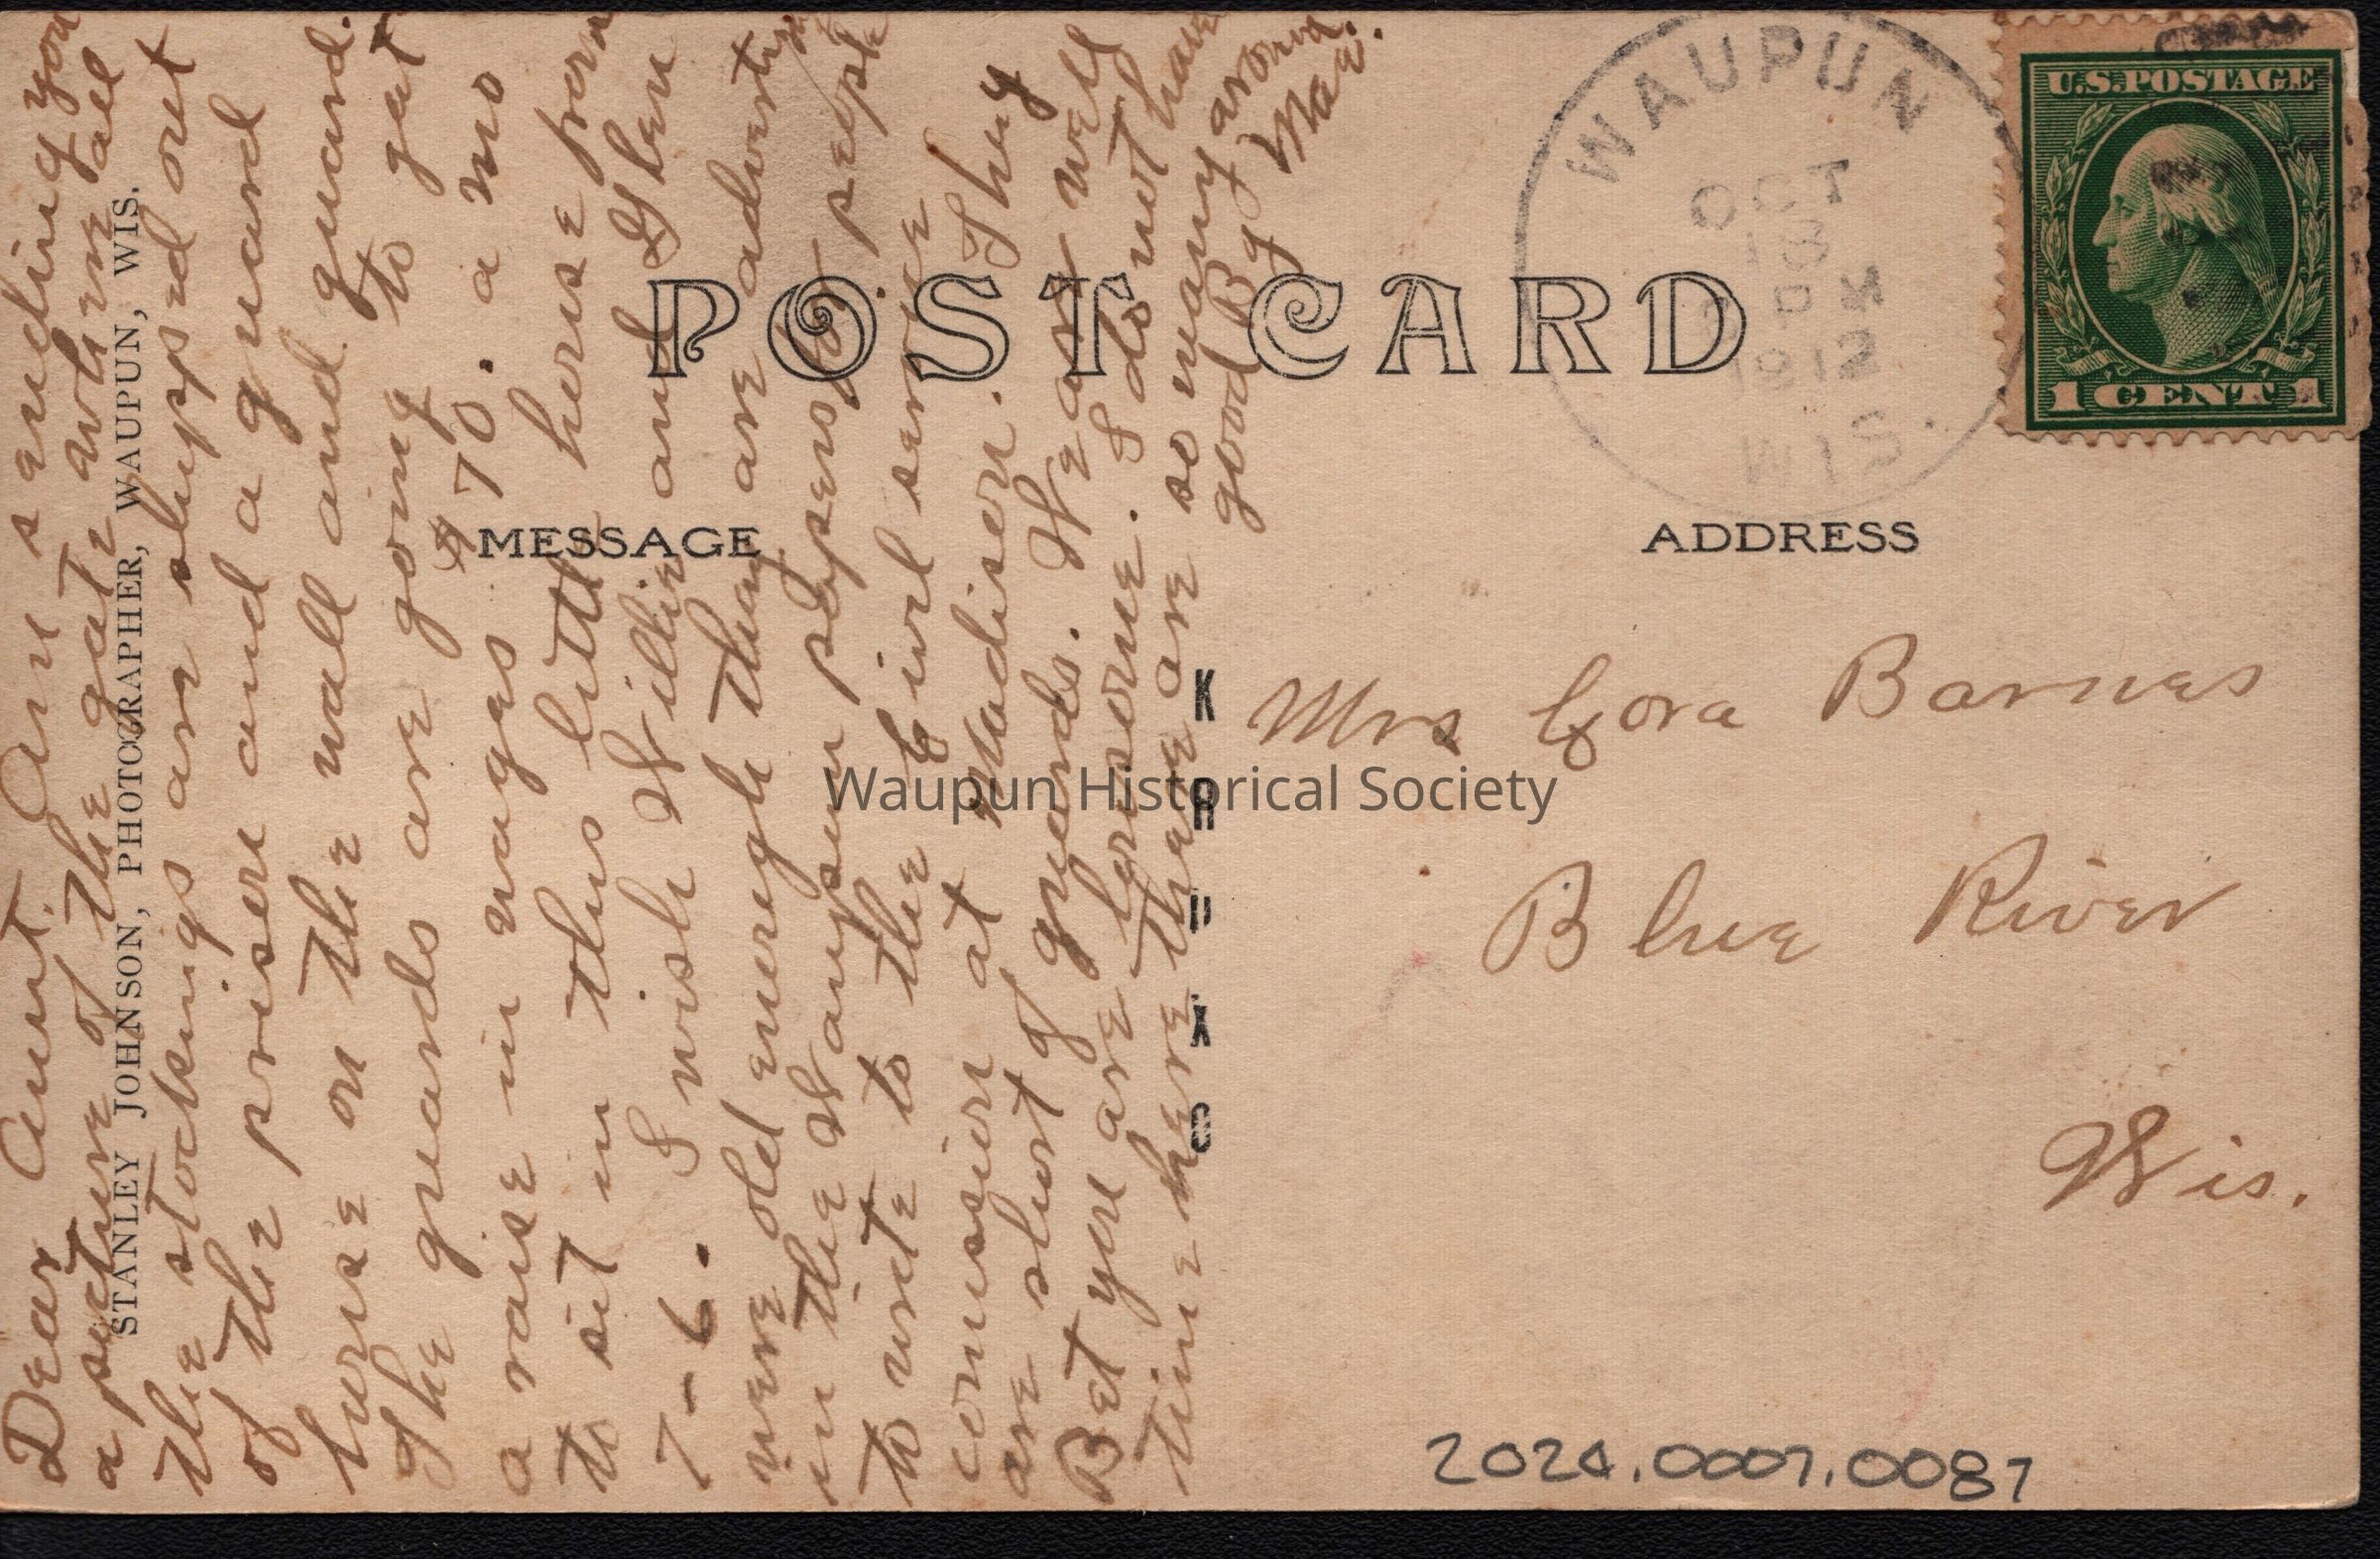 Dear Aunt. Am sending you
a picture of the gate where all
the stockings are shipped out
of the prison and a guard
house on the wall and guard.
The guards are going to get
a raise in wages $70. a mo
to sit in this little house from
7-6. I wish Willie and Glen
were old enough they are
in the Waupun papers for people
to write to the Civil service
comission at Madison. They
are short of guards. We are well
Bet you are lonesome. I do not have
time here there are so many around
good By Mae.
STANLEY JOHNSON, PHOTOGRAPHER, WAUPUN, WIS.
POST CARD
MESSAGE
ADDRESS
WAUPUN
OCT
18
PM
1912
WIS.
U.S. POSTAGE
1 CENT 1
Mrs Cora Barnes
Blue River
Wis.
Waupun Historical Society
2024.0007.0087